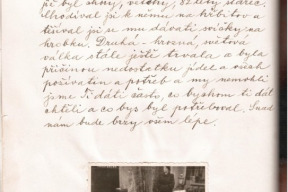 byl skoný, vetchý, 82letý stařec.
Uhodíval jsi k němu na hřbitov a
těšíval jsi se mu dávati svíčky na
hrobku. Druhá - hrozná, světová
válka stále ještě trvala a byla
příčinou nedostatku jídel a všech
poživatin a potřeb a my nemohli
jsme Ti dáti často, co bychom ti dát
chtěli a co bys byl potřeboval. Snad
nám bude brzy všem lépe.